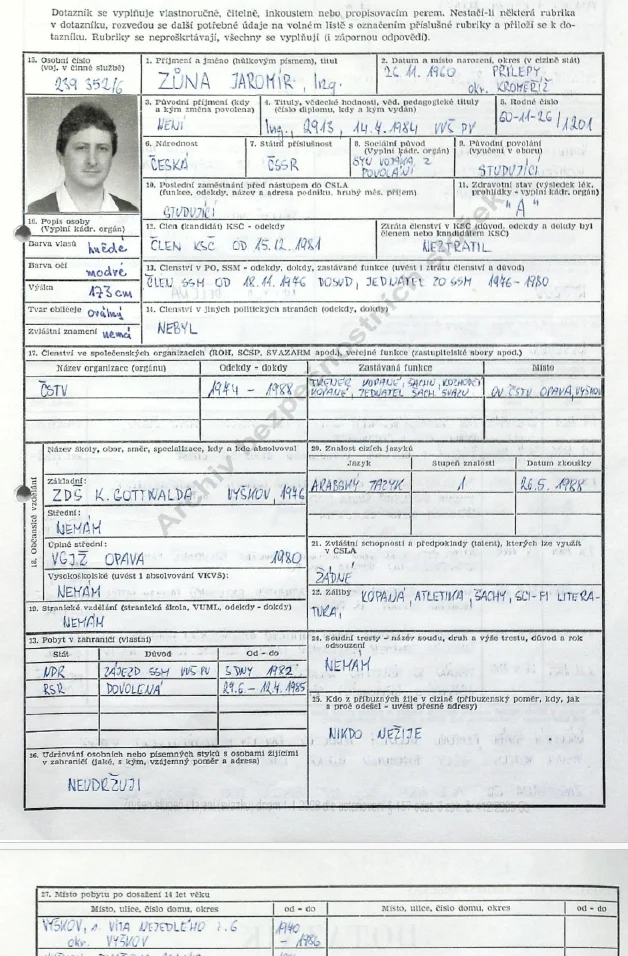 Dotazník se vyplňuje vlastnoručně, čitelně, inkoustem nebo propisovacím perem. Nestačí-li některá rubrika
v dotazníku, rozvedou se další potřebné údaje na volném listě s označením příslušné rubriky a přiloží se k do-
tazníku. Rubriky se neproškrtávají, všechny se vyplňují (i zápornou odpovědí).
15. Osobní číslo
(voj. v činné službě)
239 352/6
1. Příjmení a jméno (hůlkovým písmem), titul
ZŮNA JAROMÍR, Ing.
2. Datum a místo narození, okres (v cizině stát)
26. 11. 1960 PŘÍLEPY
okr. KROMĚŘÍŽ
3. Původní příjmení (kdy
a kým změna povolena)
NENÍ
4. Tituly, vědecké hodnosti, věd. pedagogické tituly
(číslo diplomu, kdy a kým vydán)
Ing., 2913, 14.7.1984 VVŠ PV
5. Rodné číslo
60-11-26/1201
6. Národnost
ČESKÁ
7. Státní příslušnost
ČSSR
8. Sociální původ
(Vyplní kádr. orgán)
SYN VOJÁKA Z
POVOLÁNÍ
9. Původní povolání
(vyučení v oboru)
STUDUJÍCÍ
10. Poslední zaměstnání před nástupem do ČSLA
(funkce, odekdy, název a adresa podniku, hrubý měs. příjem)
STUDUJÍCÍ
11. Zdravotní stav (výsledek lék.
prohlídky - vyplní kádr. orgán)
"A"
16. Popis osoby
(Vyplní kádr. orgán)
Barva vlasů hnědé
Barva očí modré
Výška 173 cm
Tvar obličeje oválný
Zvláštní znamení nemá
12. Člen (kandidát) KSČ - odekdy
ČLEN KSČ OD 15.12.1981
Ztráta členství v KSČ (důvod, odekdy a dokdy byl
členem nebo kandidátem KSČ)
NEZTRATIL
13. Členství v PO, SSM - odekdy, dokdy, zastávané funkce (uvést i ztrátu členství a důvod)
ČLEN SSM OD 18.11.1976 DOSUD, JEDNATEL ZO SSM 1976-1980
14. Členství v jiných politických stranách (odekdy, dokdy)
NEBYL
17. Členství ve společenských organizacích (ROH, SČSP, SVAZARM apod.), veřejné funkce (zastupitelské sbory apod.)
Název organizace (orgánu) Odekdy - dokdy Zastávaná funkce Místo
ČSTV 1974 - 1988 TRENÉR KOPANÉ, ŠACHU, ROZHODČÍ
KOPANÉ, JEDNATEL ŠACH. SVAZU OV ČSTV OPAVA, VYŠKOV
18. Občanské vzdělání
Název školy, obor, směr, specializace, kdy a kde absolvoval
Základní:
ZDŠ K. GOTTWALDA VYŠKOV, 1976
Střední:
NEMÁM
Úplné střední:
VGJŽ OPAVA 1980
Vysokoškolské (uvést i absolvování VKVŠ):
NEMÁM
19. Stranické vzdělání (stranická škola, VUML, odekdy - dokdy)
NEMÁM
20. Znalost cizích jazyků
Jazyk Stupeň znalostí Datum zkoušky
ARABSKÝ JAZYK 1 26.5. 1988
21. Zvláštní schopnosti a předpoklady (talent), kterých lze využít
v ČSLA
ŽÁDNÉ
22. Záliby KOPANÁ, ATLETIKA, ŠACHY, SCI-FI LITERA-
TURA,
23. Pobyt v zahraničí (vlastní)
Stát Důvod Od - do
NDR ZÁJEZD SSM VVŠ PV 5 DNY 1982
RSR DOVOLENÁ 29.6. - 12.7. 1985
24. Soudní tresty - název soudu, druh a výše trestu, důvod a rok
odsouzení
NEMÁM
25. Kdo z příbuzných žije v cizině (příbuzenský poměr, kdy, jak
a proč odešel - uvést přesné adresy)
NIKDO NEŽIJE
26. Udržování osobních nebo písemných styků s osobami žijícími
v zahraničí (jaké, s kým, vzájemný poměr a adresa)
NEUDRŽUJI
Archiv bezpečnostních složek
27. Místo pobytu po dosažení 14 let věku
Místo, ulice, číslo domu, okres od - do Místo, ulice, číslo domu, okres od - do
VYŠKOV, VÍTA NEJEDLÉHO č. 6
okr. VYŠKOV - 1986